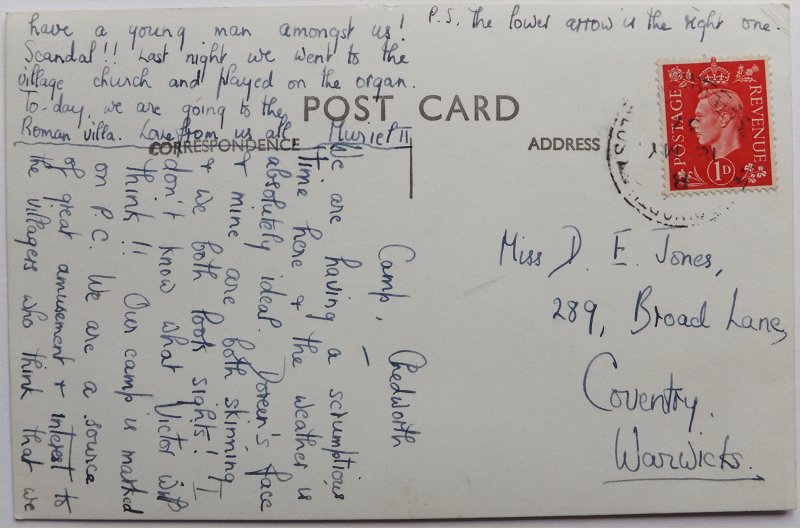 POST CARD
CORRESPONDENCE
ADDRESS
POSTAGE
REVENUE
1D
Camp, Chedworth
We are having a scrumptious
time here & the weather is
absolutely ideal. Doreen's face
& mine are both skinning
& we both look sights! I
don't know what Victor will
think!! Our camp is marked
on P.C. We are a source
of great amusement & interest to
the villagers who think that we
have a young man amongst us!
Scandal!! Last night we went to the
village church and played on the organ.
To-day we are going to the
Roman villa. Love from us all Muriel
P.S. The lower arrow is the right one.
Miss D. E. Jones,
289, Broad Lane,
Coventry.
Warwicks.